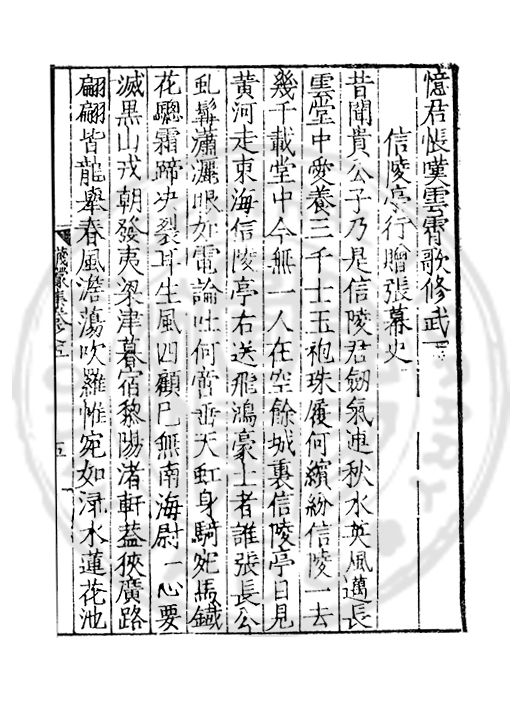 憶君悵嘆雲霄歌修武
信陵亭行贈張幕史
昔聞貴公子乃是信陵君劒氣連秋水英風邁長
雲堂中愛養三千士玉袍珠履何繽紛信陵一去
幾千載堂中今無一人在空餘城裏信陵亭日見
黃河走東海信陵亭右送飛鴻豪士者誰張長公
虬髯瀟灑眼如電論吐何啻垂天虹身騎宛馬鐵
花驄霜蹄决裂耳生風四顧已無南海尉一心要
滅黑山戎朝發夷梁津暮宿黎陽渚軒蓋狹廣路
翩翩皆龍舉春風澹蕩吹羅帷宛如淥水蓮花池
五